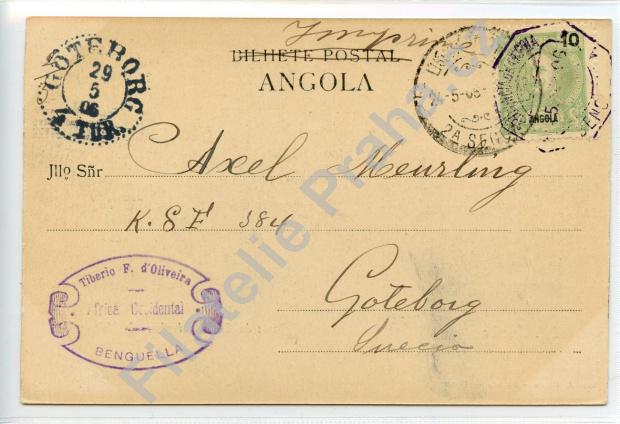 Imprimé
BILHETE POSTAL
ANGOLA
GÖTEBORG
29
5
06
4 TUR
10
ANGOLA
2A SEC
Jllo Sñr Axel Meurling
K.S.F 384
Göteborg
Suecia
Tiberio F. d'Oliveira
Africa Occidental
BENGUELLA
Filatelie Praha.cz